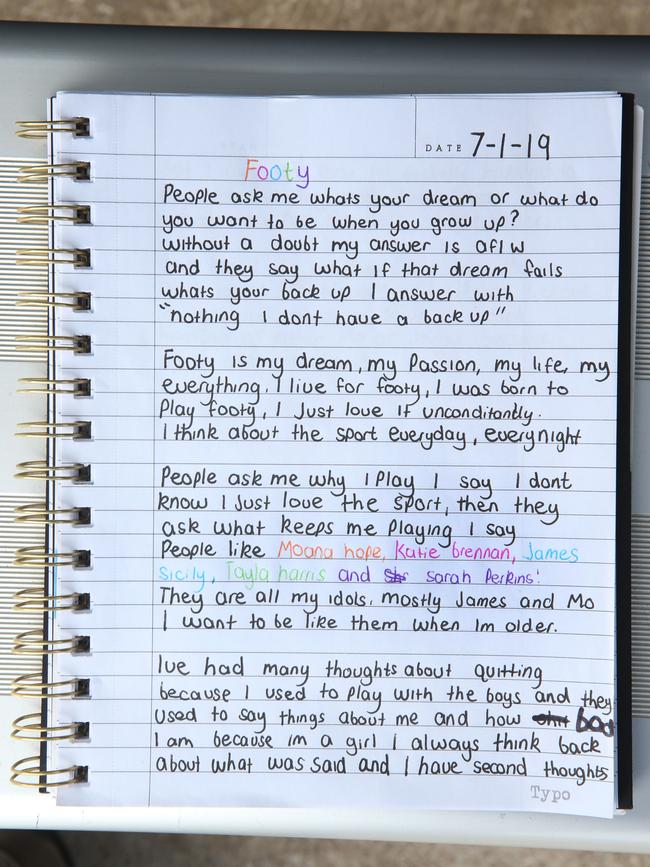 DATE 7-1-19
Footy
People ask me whats your dream or what do
you want to be when you grow up?
without a doubt my answer is aflw
and they say what if that dream fails
whats your back up I answer with
"nothing I dont have a back up"
Footy is my dream, my Passion, my life, my
everything. I live for footy, I was born to
Play footy, I Just love it unconditantly.
I think about the sport everyday, everynight
People ask me why I Play I say I dont
know I Just love the sport, then they
ask what keeps me Playing I say
People like Moana hope, Katie brennan, James
Sicily, Tayla harris and sarah Perkins!
They are all my idols. mostly James and Mo
I want to be like them when Im older.
Ive had many thoughts about quitting
because I used to Play with the boys and they
used to say things about me and how bad
I am because im a girl I always think back
about what was said and I have second thoughts
Typo